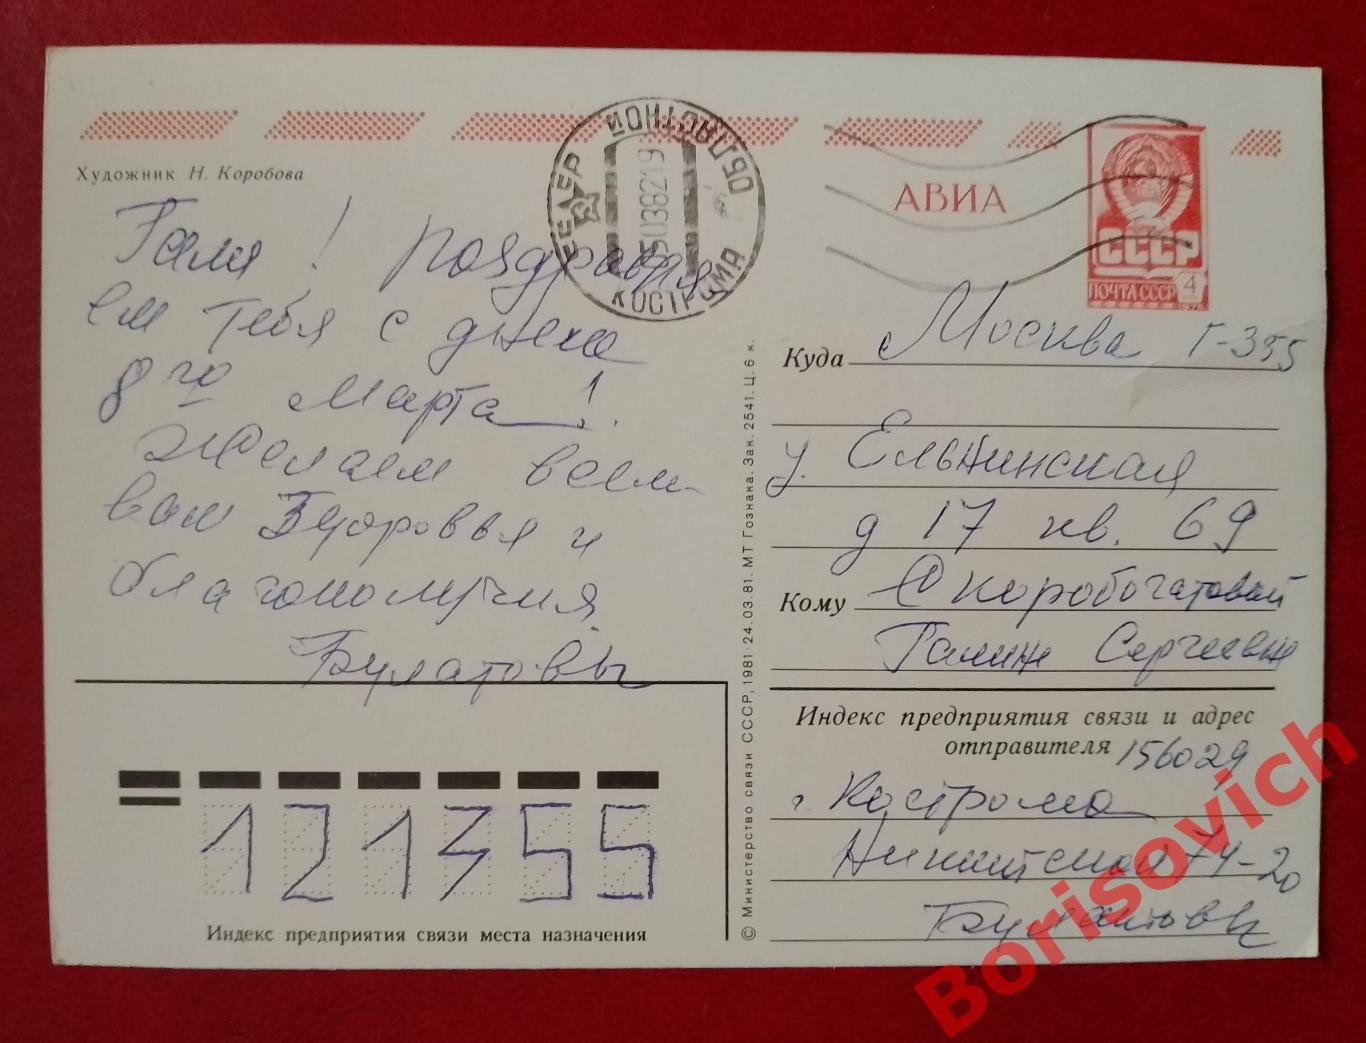 Художник Н. Коробова
Галя! Поздравля
ем тебя с днем
8го Марта!
Желаем всем
вам Здоровья и
благополучия.
Булатовы
КОСТРОМА
ОБЛАСТНОЙ
АВИА
СССР
ПОЧТА СССР
4
1976
Куда Москва Г-355
у. Ельнинская
д 17 кв. 69
Кому Скоробогатовой
Галине Сергеевне
Индекс предприятия связи и адрес
отправителя 156029
г. Кострома
Никитская 74-20
Булатовы
121355
Индекс предприятия связи места назначения
© Министерство связи СССР, 1981 · 24.03.81. МТ Гознака. Зак. 2541. Ц. 6 к.
Borisovich